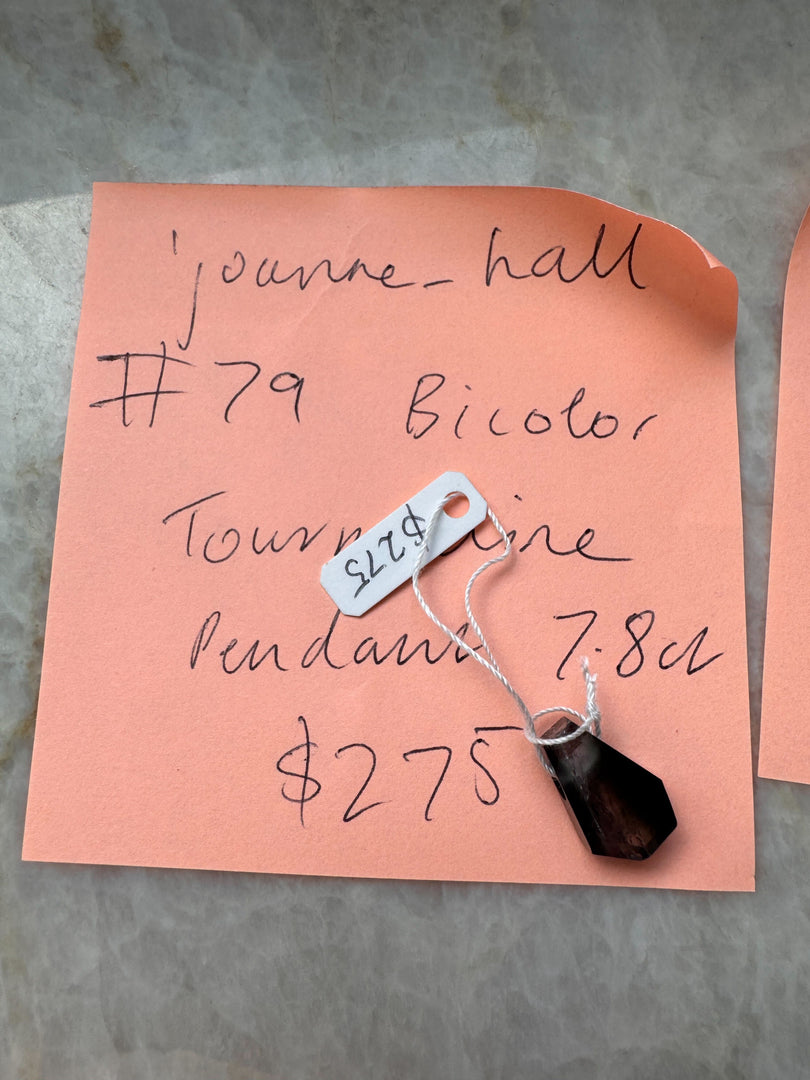 joanne_hall
#79 Bicolor
Tourmaline
Pendant 7.8ct
$275
$275